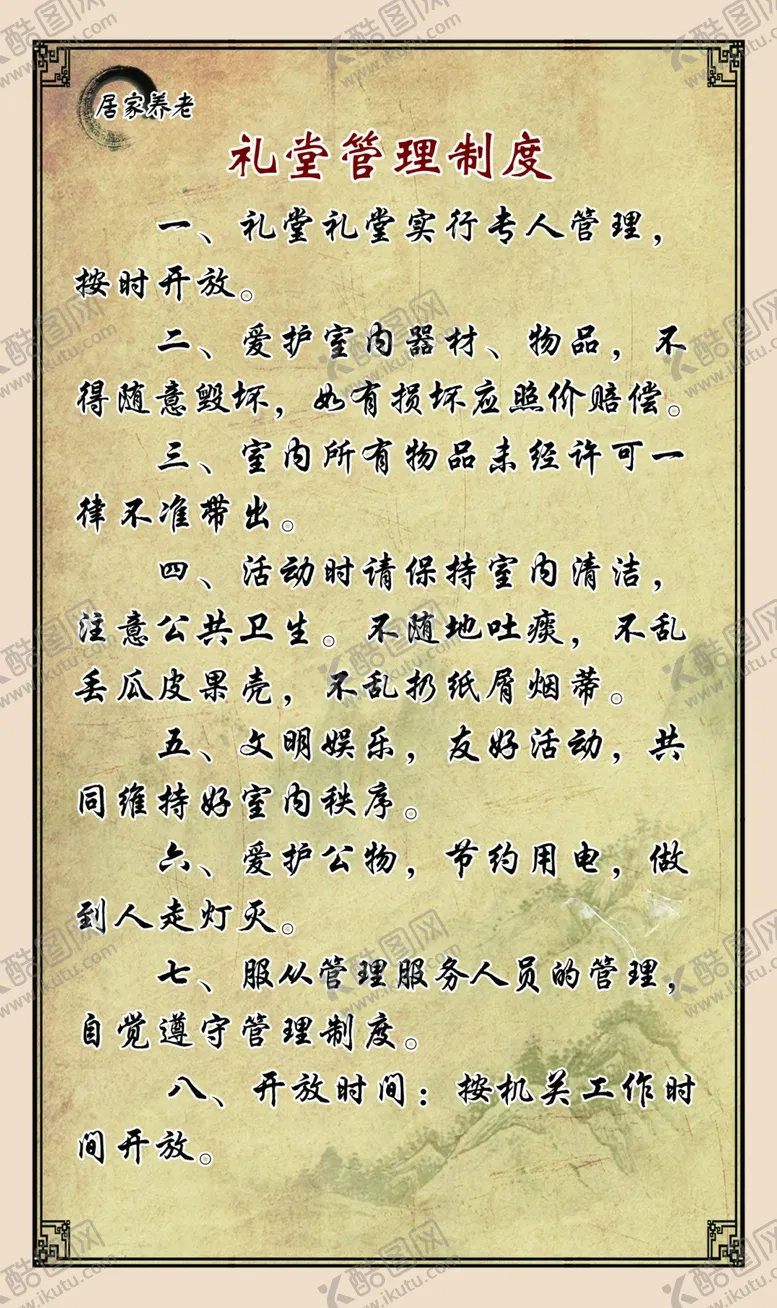 居家养老
礼堂管理制度
一、礼堂礼堂实行专人管理，
按时开放。
二、爱护室内器材、物品，不
得随意毁坏，如有损坏应照价赔偿。
三、室内所有物品未经许可一
律不准带出。
四、活动时请保持室内清洁，
注意公共卫生。不随地吐痰，不乱
丢瓜皮果壳，不乱扔纸屑烟蒂。
五、文明娱乐，友好活动，共
同维持好室内秩序。
六、爱护公物，节约用电，做
到人走灯灭。
七、服从管理服务人员的管理，
自觉遵守管理制度。
八、开放时间：按机关工作时
间开放。
酷图网
www.ikutu.com